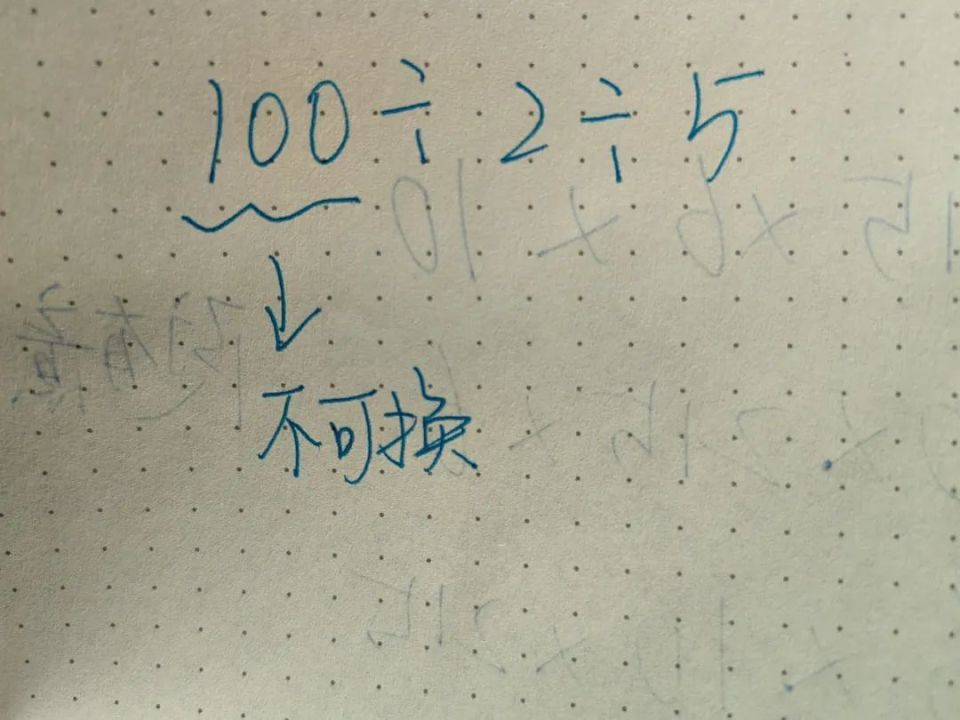 100÷2÷5
不可换